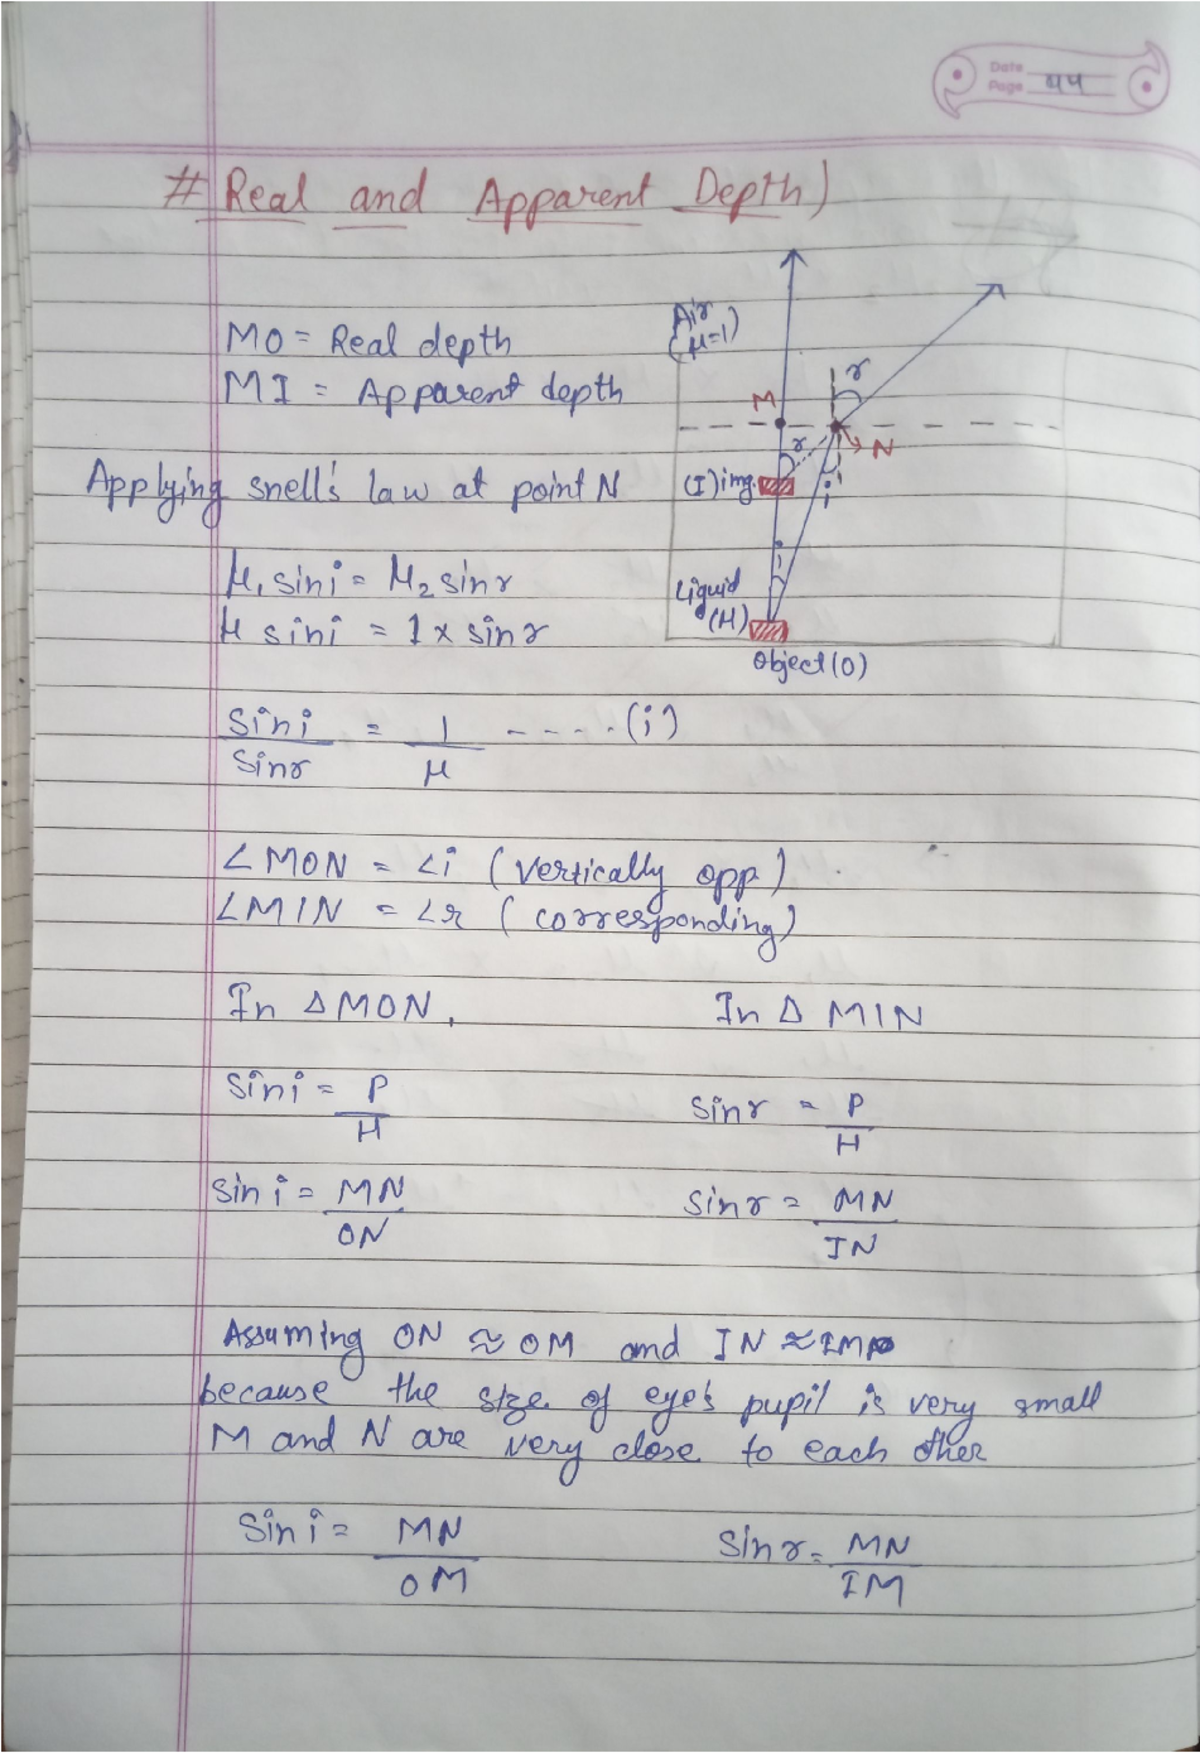 Date
Page 44
# Real and Apparent Depth)
MO = Real depth
MI = Apparent depth
Air
(μ=1)
r
M
r
N
(I) img.
i
i
Liquid
(μ)
Object (O)
Applying snell's law at point N
μ₁ sin i = μ₂ sin r
μ sin i = 1 x sin r
sin i / sin r = 1 / μ ----- (i)
∠MON = ∠i (vertically opp)
∠MIN = ∠r (corresponding)
In Δ MON, In Δ MIN
sin i = P/H sin r = P/H
sin i = MN/ON sin r = MN/IN
Assuming ON ≈ OM and IN ≈ IM
because the size of eye's pupil is very small
M and N are very close to each other
sin i = MN/OM sin r = MN/IM